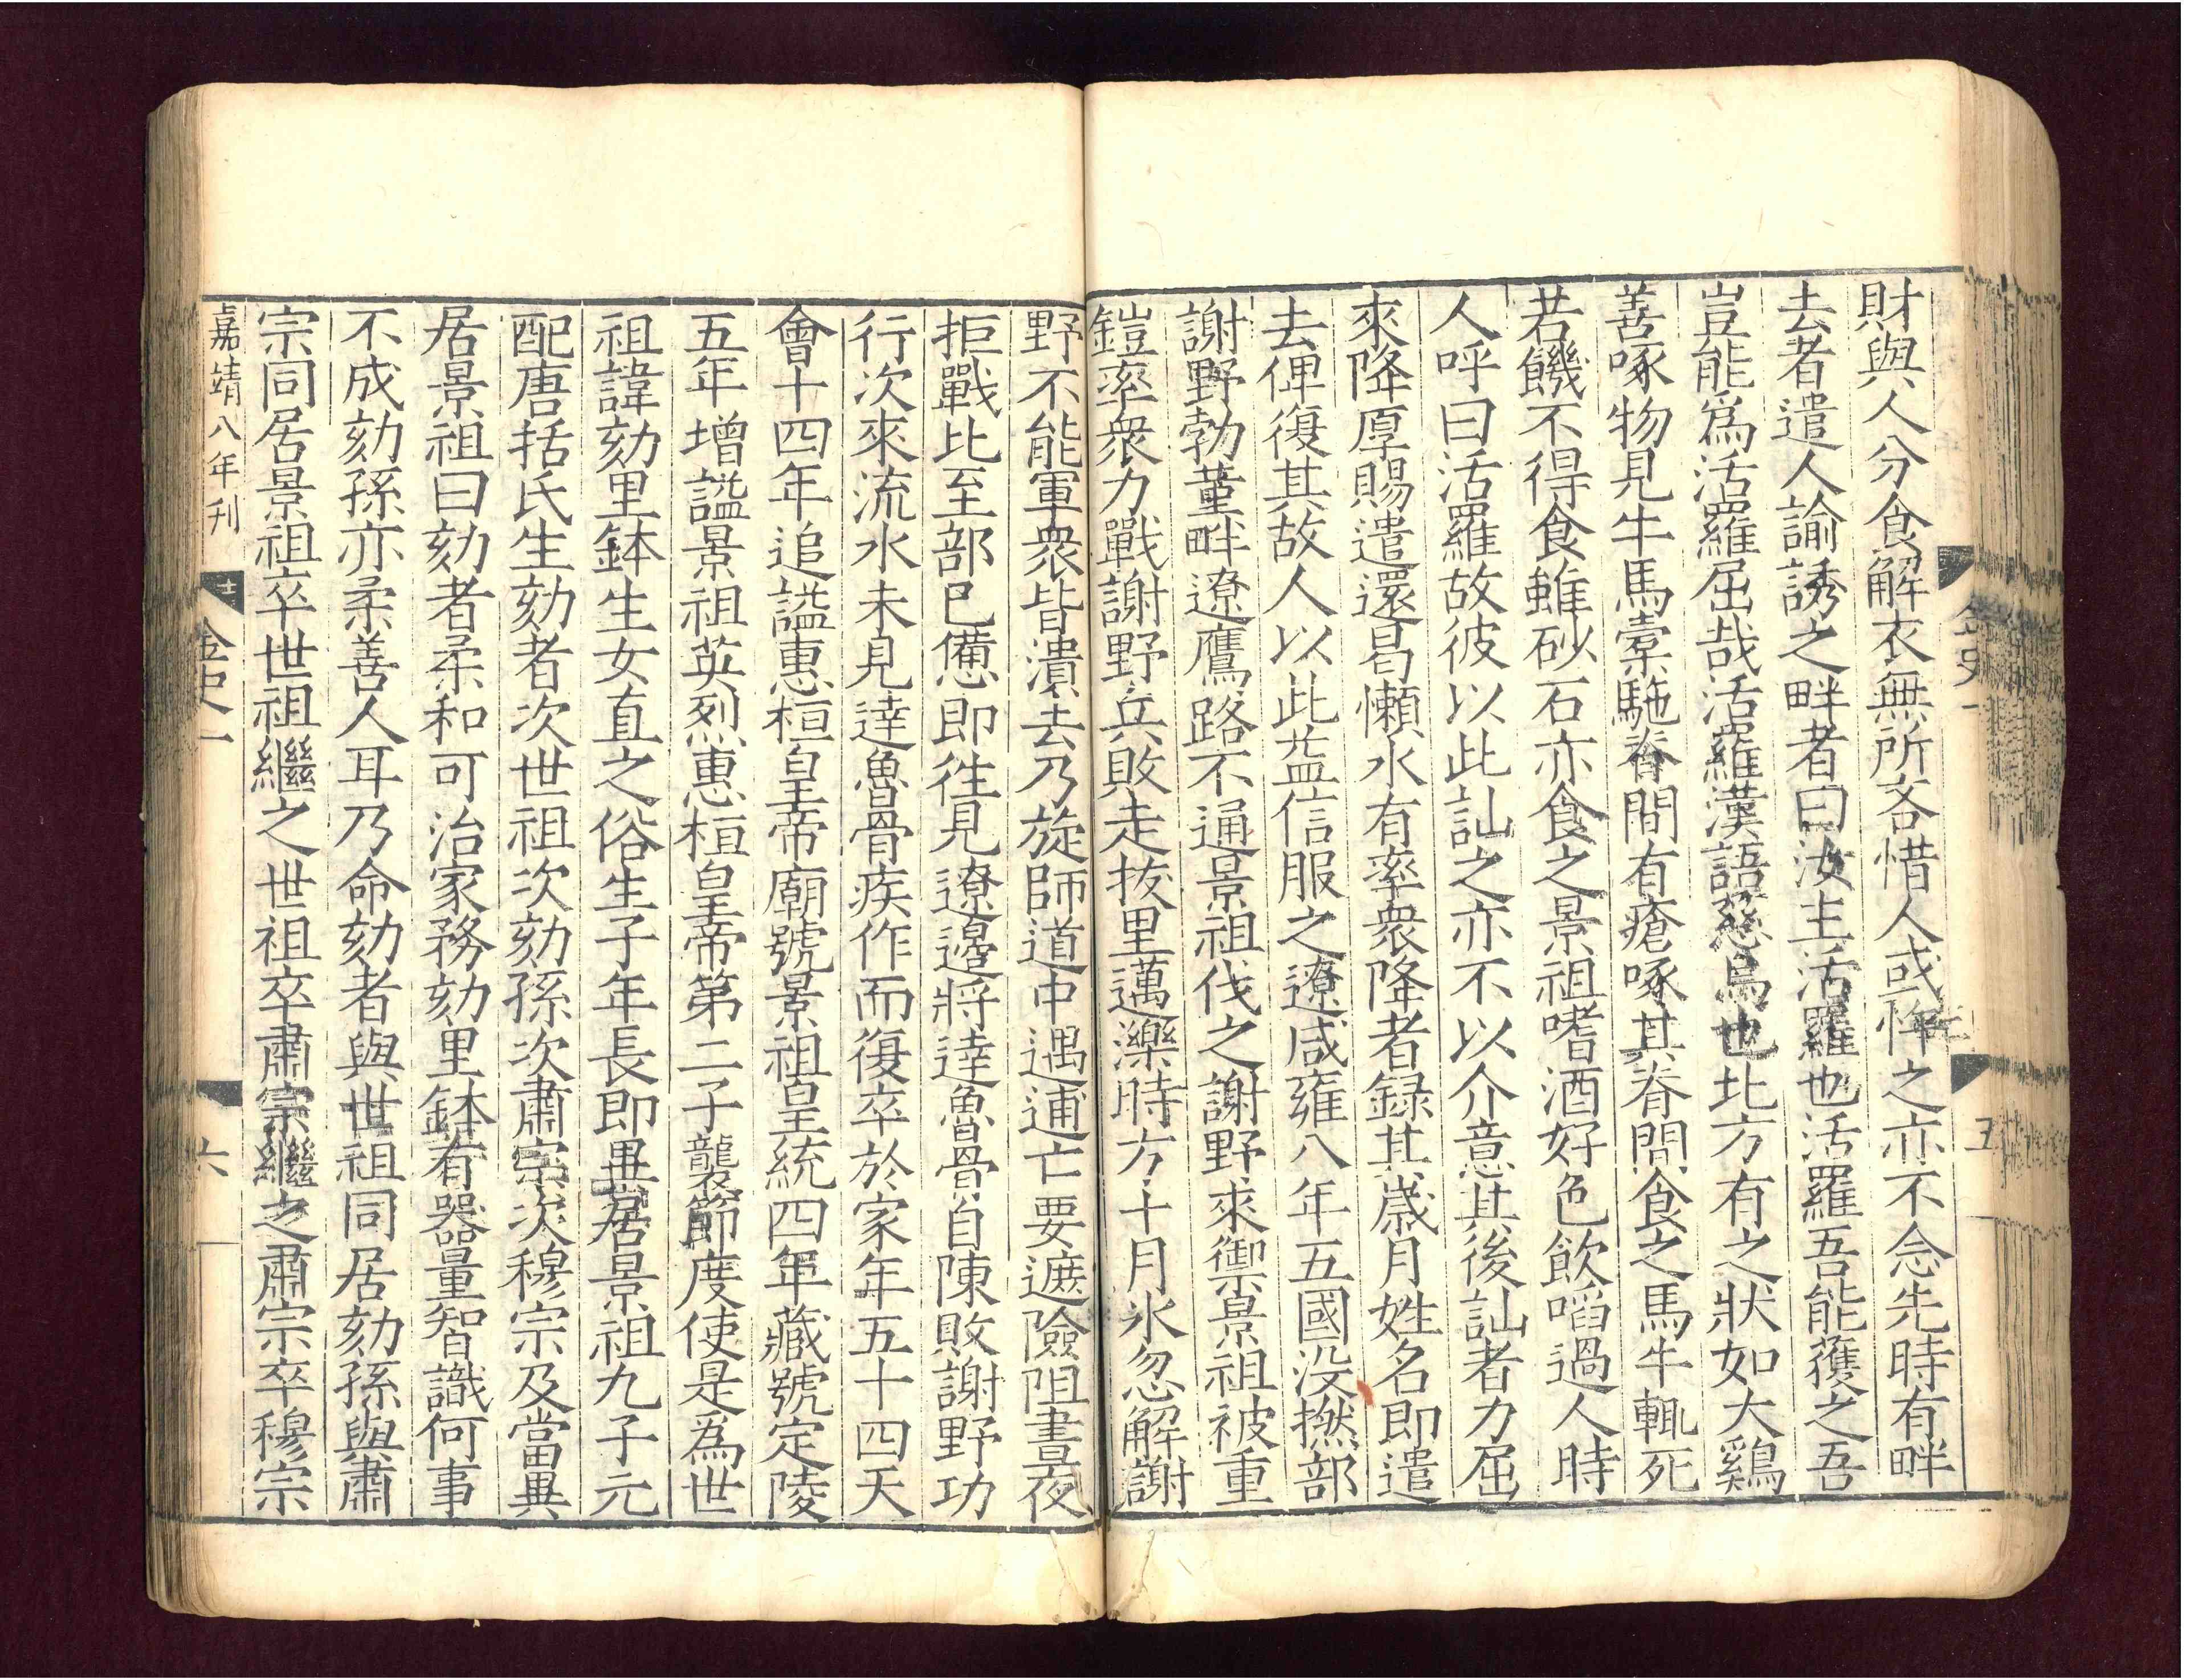 財與人分食解衣無所吝惜人或忤之亦不念先時有畔
去者遣人諭誘之畔者曰汝主活羅也活羅吾能獲之吾
豈能爲活羅屈哉活羅漢語慈烏也北方有之狀如大鷄
善啄物見牛馬橐駞脊間有瘡啄其脊間食之馬牛輒死
若饑不得食雖砂石亦食之景祖嗜酒好色飲啗過人時
人呼曰活羅故彼以此訕之亦不以介意其後訕者力屈
來降厚賜遣還曷懶水有率衆降者録其歲月姓名即遣
去俾復其故人以此益信服之遼咸雍八年五國没撚部
謝野勃菫畔遼鷹路不通景祖伐之謝野來禦景祖被重
鎧率衆力戰謝野兵敗走拔里邁濼時方十月氷忽解謝
金史一
五
野不能軍衆皆潰去乃旋師道中遇逋亡要遮險阻晝夜
拒戰比至部已憊即徃見遼邊將達魯骨自陳敗謝野功
行次來流水未見達魯骨疾作而復卒於家年五十四天
會十四年追謚惠桓皇帝廟號景祖皇統四年藏號定陵
五年增謚景祖英烈惠桓皇帝第二子襲節度使是爲世
祖諱劾里鉢生女直之俗生子年長即異居景祖九子元
配唐括氏生劾者次世祖次劾孫次肅宗次穆宗及當異
居景祖曰劾者柔和可治家務劾里鉢有器量智識何事
不成劾孫亦柔善人耳乃命劾者與世祖同居劾孫與肅
宗同居景祖卒世祖繼之世祖卒肅宗繼之肅宗卒穆宗
嘉靖八年刊
金史一
六